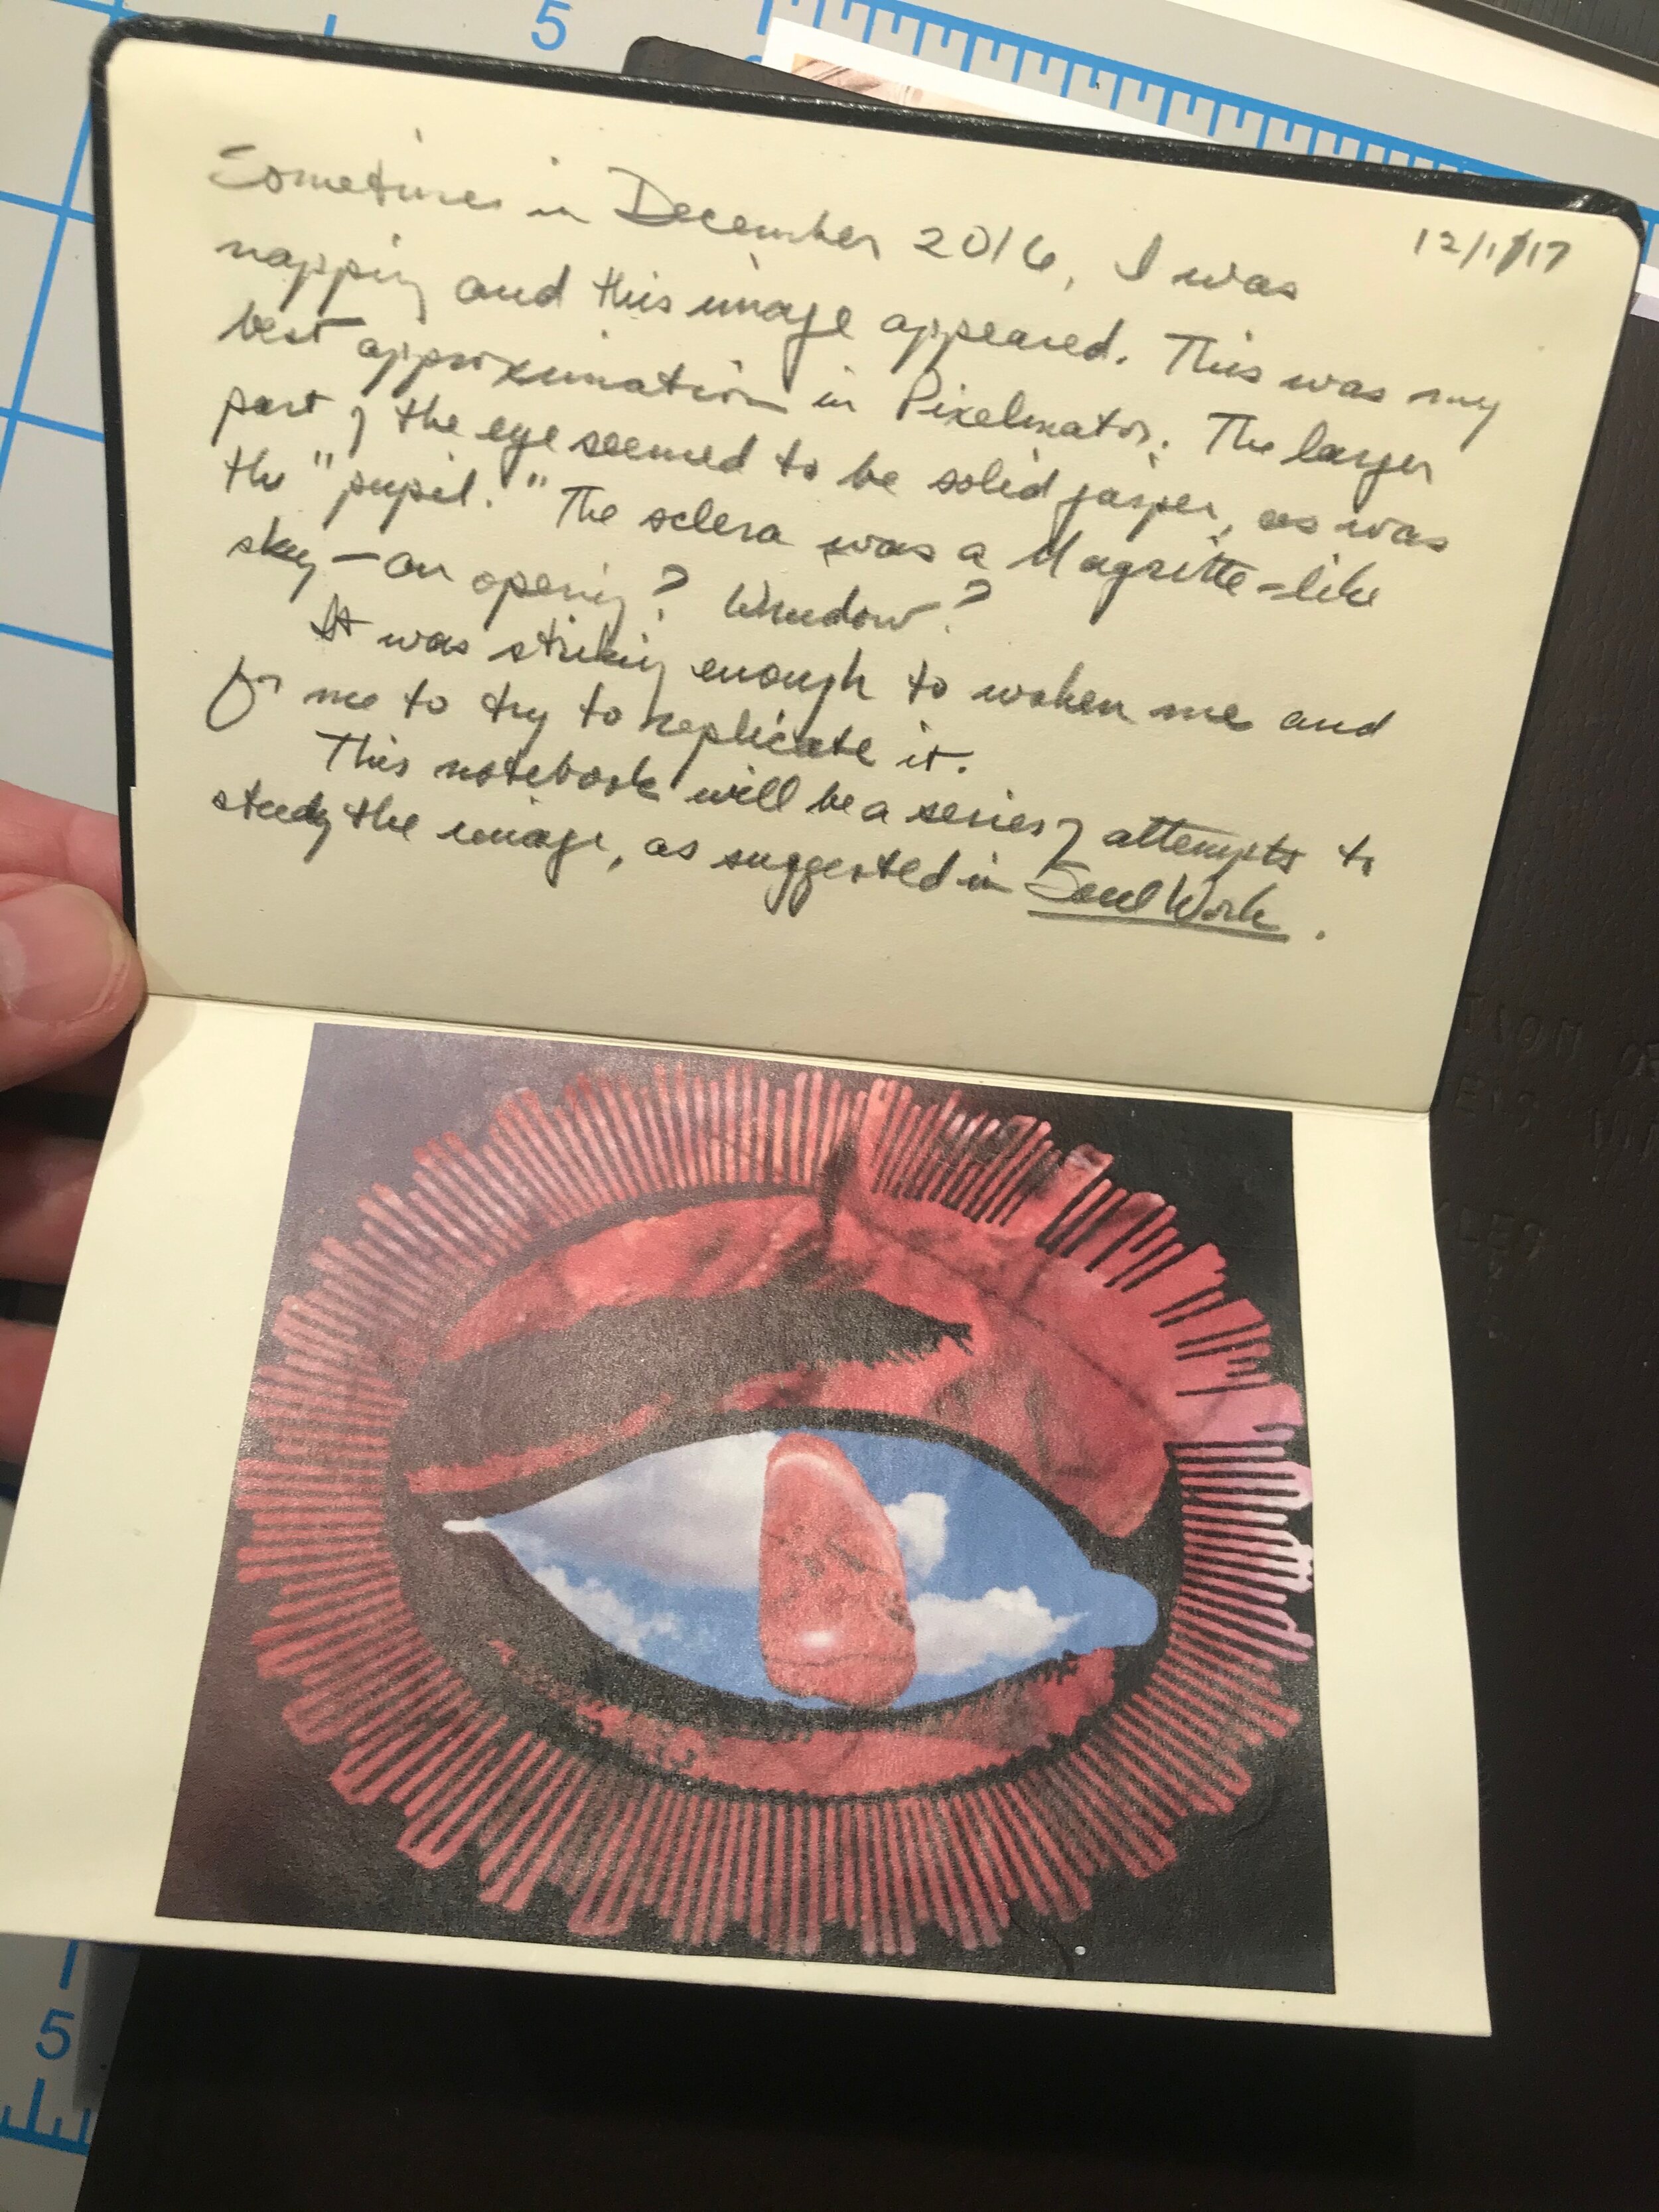 12/1/17
Sometimes in December 2016, I was
napping and this image appeared. This was my
best approximation in Pixelmator. The larger
part of the eye seemed to be solid jasper, as was
the "pupil." The sclera was a Magritte-like
sky – an opening? Window?
It was striking enough to waken me and
for me to try to replicate it.
This notebook will be a series of attempts to
study the image, as suggested in Soul Work.
5
5